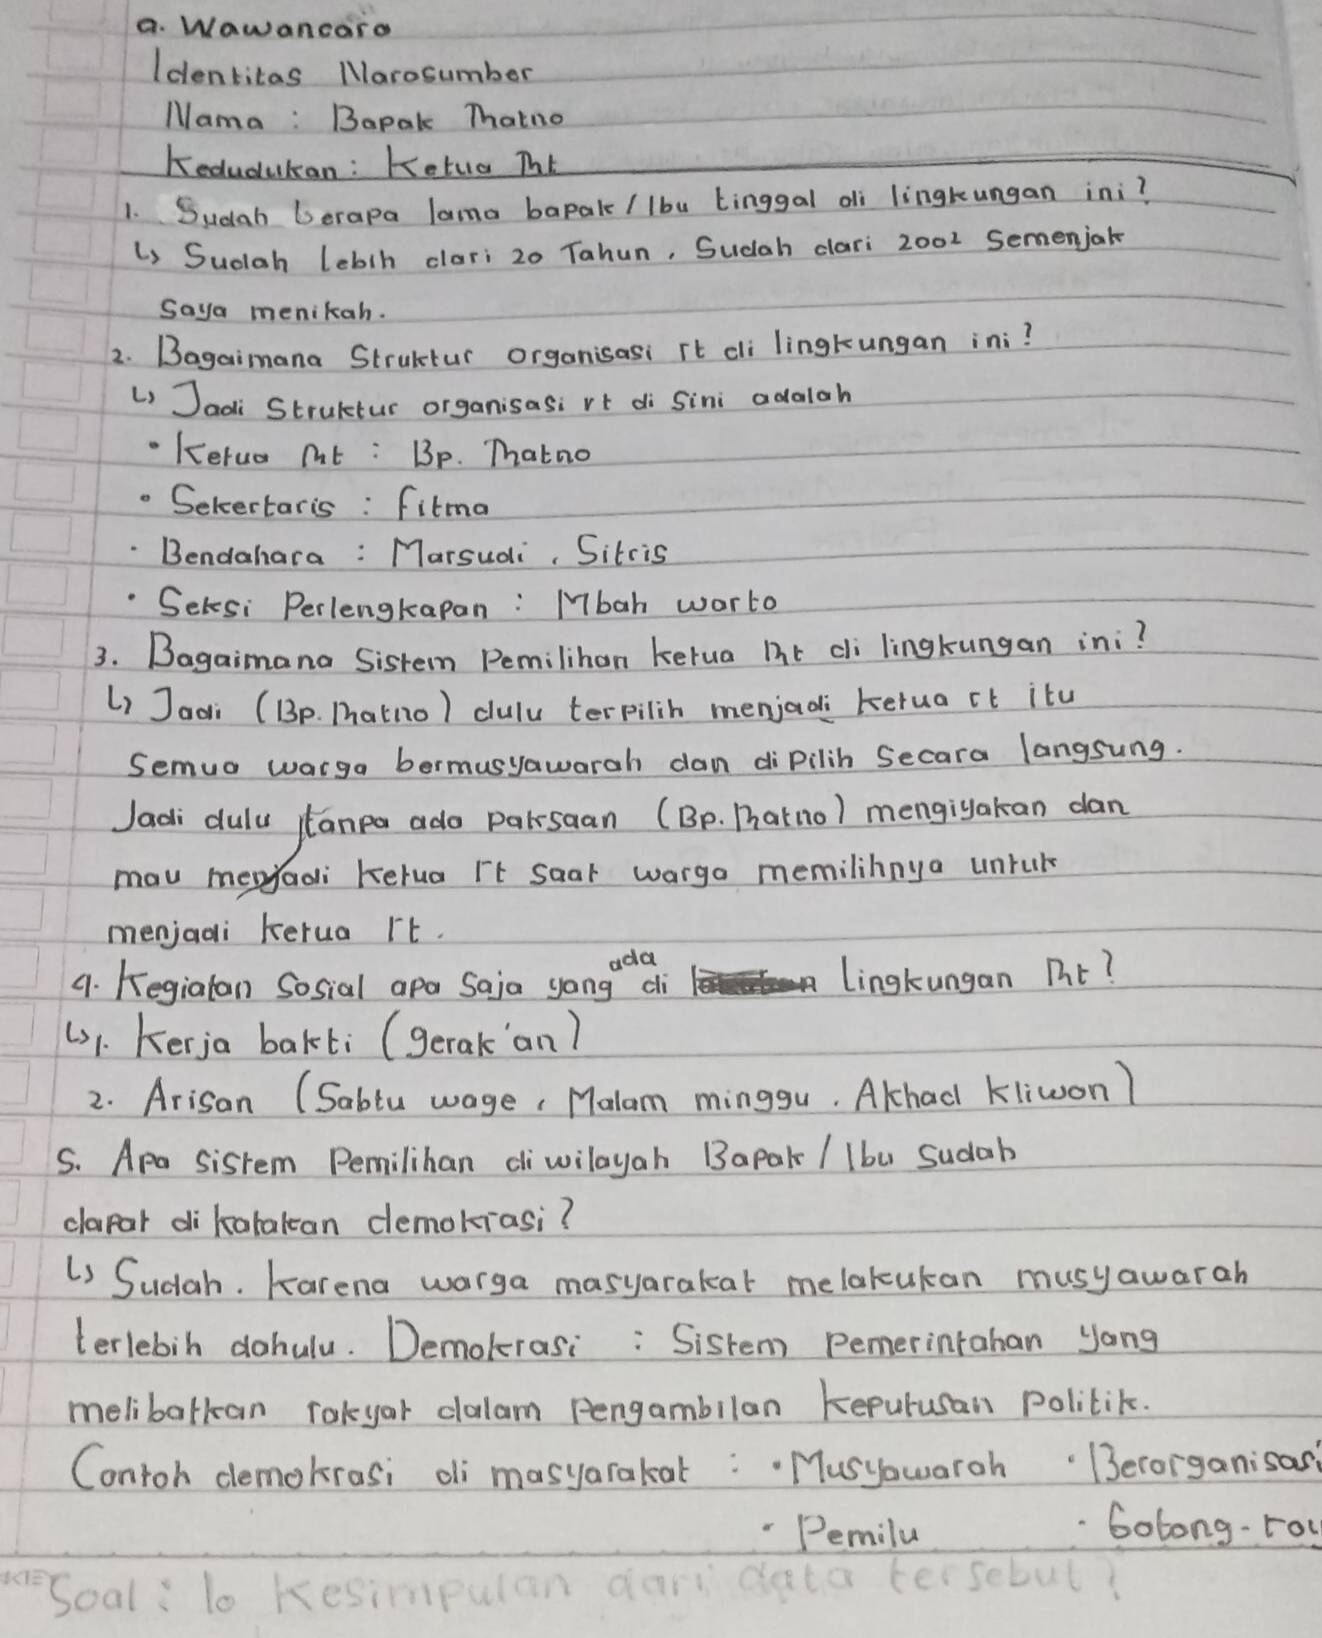 a. Wawancara
Identitas Narasumber
Nama : Bapak Rhatno
Kedudukan : Ketua Rt
1. Sudah berapa lama bapak / Ibu tinggal di lingkungan ini?
↳ Sudah lebih dari 20 Tahun, Sudah dari 2002 semenjak
saya menikah.
2. Bagaimana Struktur organisasi rt di lingkungan ini?
↳ Jadi Struktur organisasi rt di sini adalah
• Ketua Rt : Bp. Rhatno
• Sekertaris : fitma
• Bendahara : Marsudi, Sitris
• Seksi Perlengkapan : Mbah warto
3. Bagaimana Sistem Pemilihan ketua Rt di lingkungan ini?
↳ Jadi (Bp. Rhatno) dulu terpilih menjadi ketua rt itu
semua warga bermusyawarah dan di pilih secara langsung.
Jadi dulu tanpa ada paksaan (Bp. Rhatno) mengiyakan dan
mau menjadi ketua rt saat warga memilihnya untuk
menjadi ketua rt.
4. Kegiatan Sosial apa saja yang ada di lingkungan Rt?
↳ 1. Kerja bakti (gerak'an)
2. Arisan (Sabtu wage, Malam minggu. Akhad kliwon)
5. Apa sistem Pemilihan di wilayah Bapak / Ibu sudah
dapat di katakan demokrasi?
↳ Sudah. karena warga masyarakat melakukan musyawarah
terlebih dahulu. Demokrasi : Sistem pemerintahan yang
melibatkan rakyat dalam pengambilan keputusan politik.
Contoh demokrasi di masyarakat : • Musyawarah • Berorganisasi
• Pemilu • Gotong-roy
Soal : 10 Kesimpulan dari data tersebut?